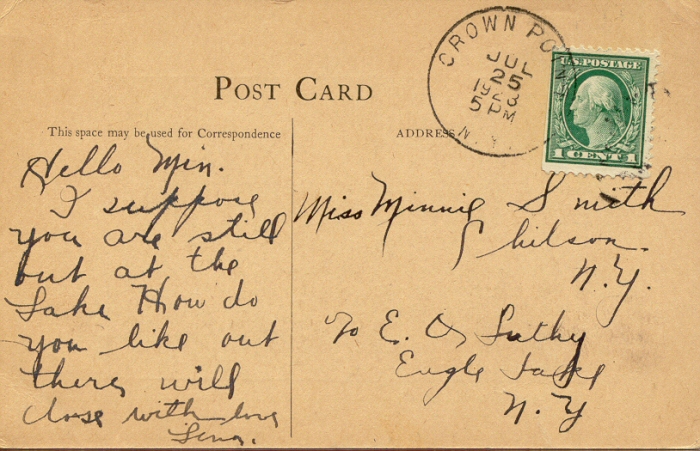 POST CARD
This space may be used for Correspondence
ADDRESS
CROWN POINT
JUL
25
1923
5 PM
N.
U.S. POSTAGE
1 CENT 1
Hello Min.
I suppose
you are still
out at the
Lake How do
you like out
there will
close with love
Lena.
Miss Minnie Smith
Chilson
N.Y.
To E. O.
Eagle Lake
N.Y